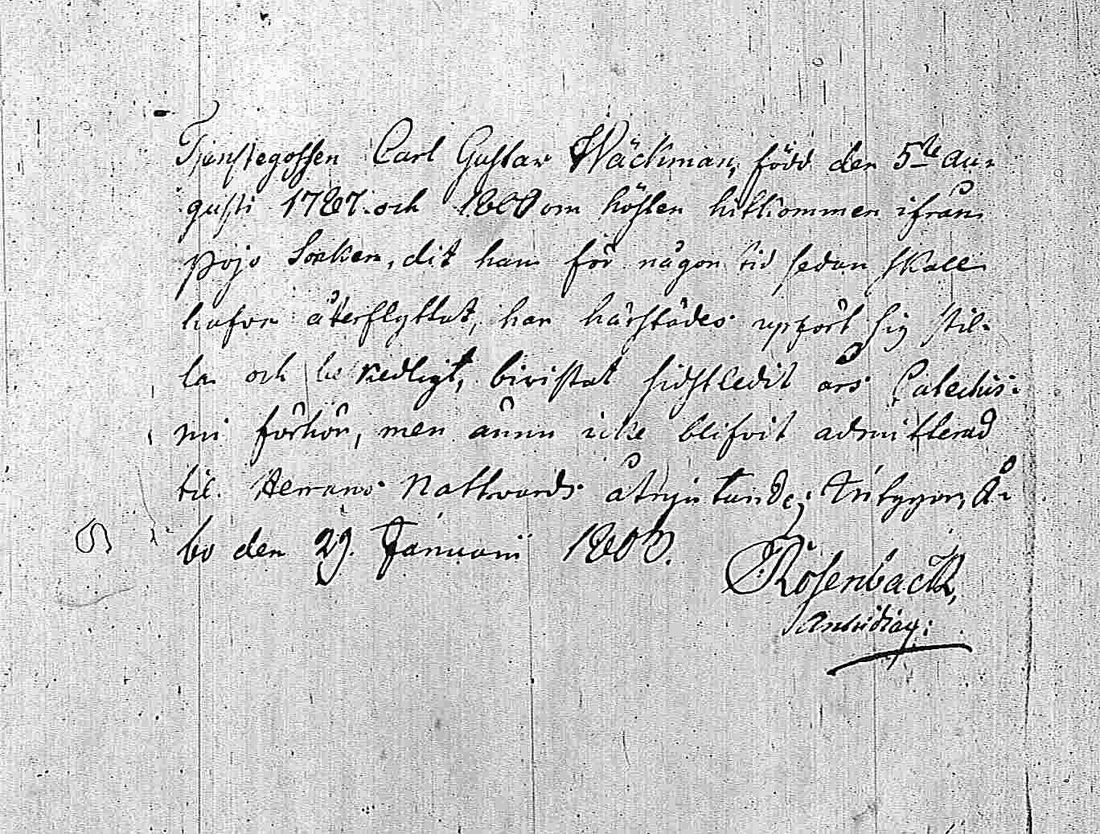 Tjenstegossen Carl Gustav Wäckman, född den 5te au-
gusti 1787. och 1800 om hösten hitkommen ifrån
Pojo Socken, dit han för någon tid sedan skall
hafva återflyttat, har härstädes upfört sig stil-
la och beskedligt, bivistat sidstledit års Catechis-
mi förhör, men ännu icke blifvit admitterad
til Herrans Nattvards åtnjutande; intygar, Å-
bo den 29. Januarii
Rosenback,